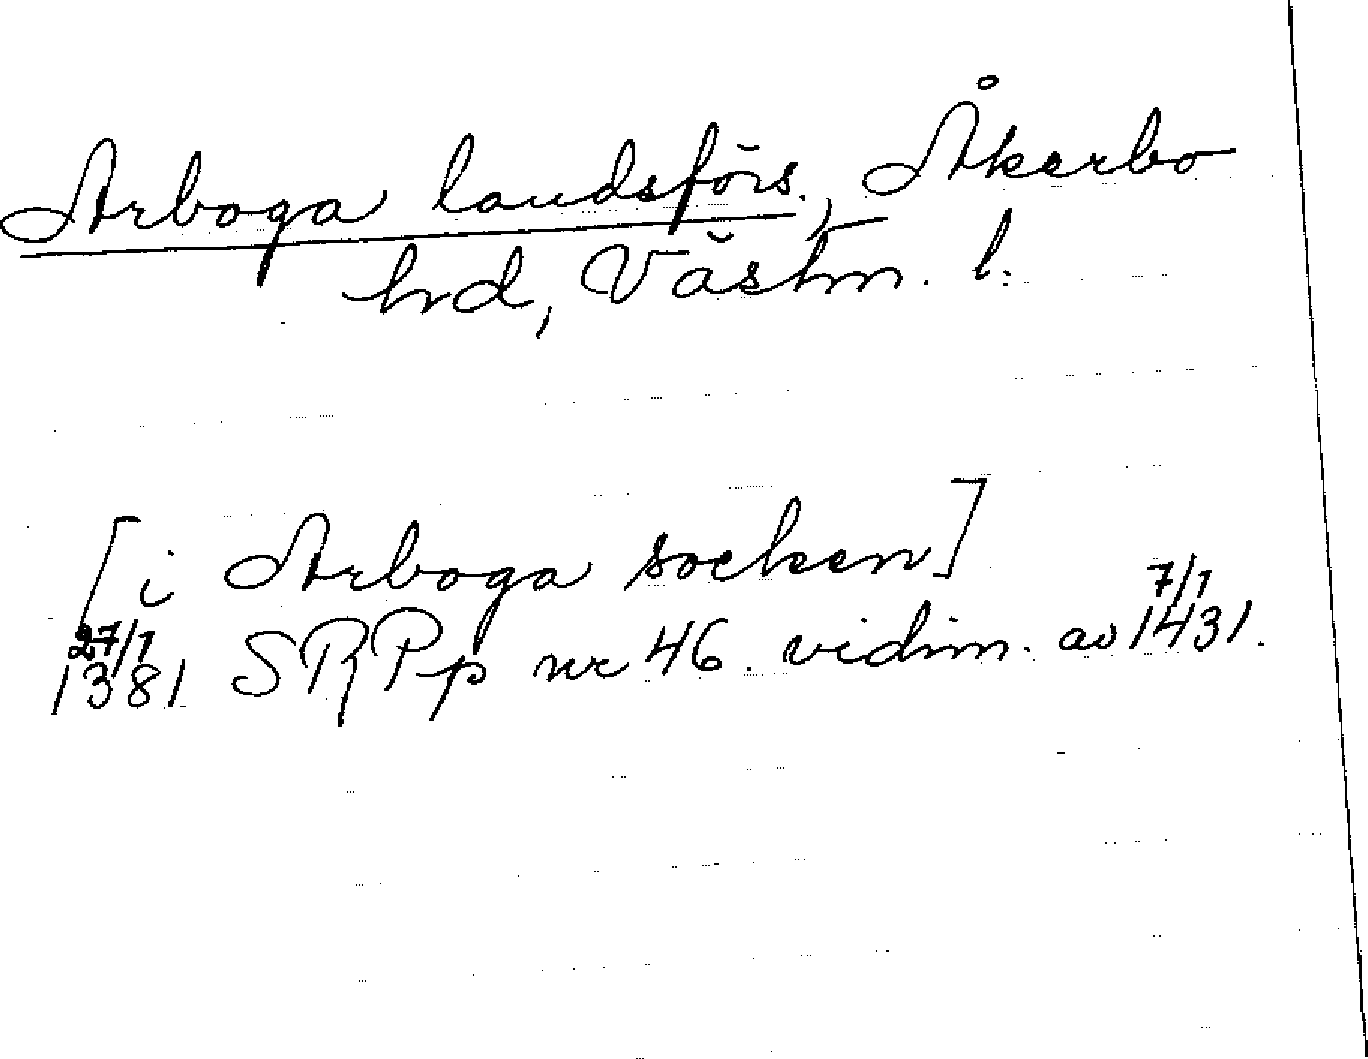 Arboga landsförs., Åkerbo
hd, Västm. l:
[i Arboga socken]
27/1 1381 SRPp nr 46. vidim. av 7/1 1431.